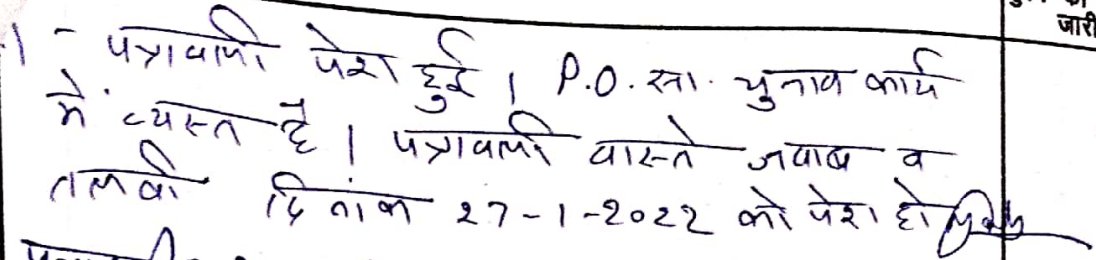 जारी
1 - पत्रावली पेश हुई । P.O. सा. चुनाव कार्य
में व्यस्त है । पत्रावली वास्ते जवाब व
तलबी दिनांक 27-1-2022 को पेश हो